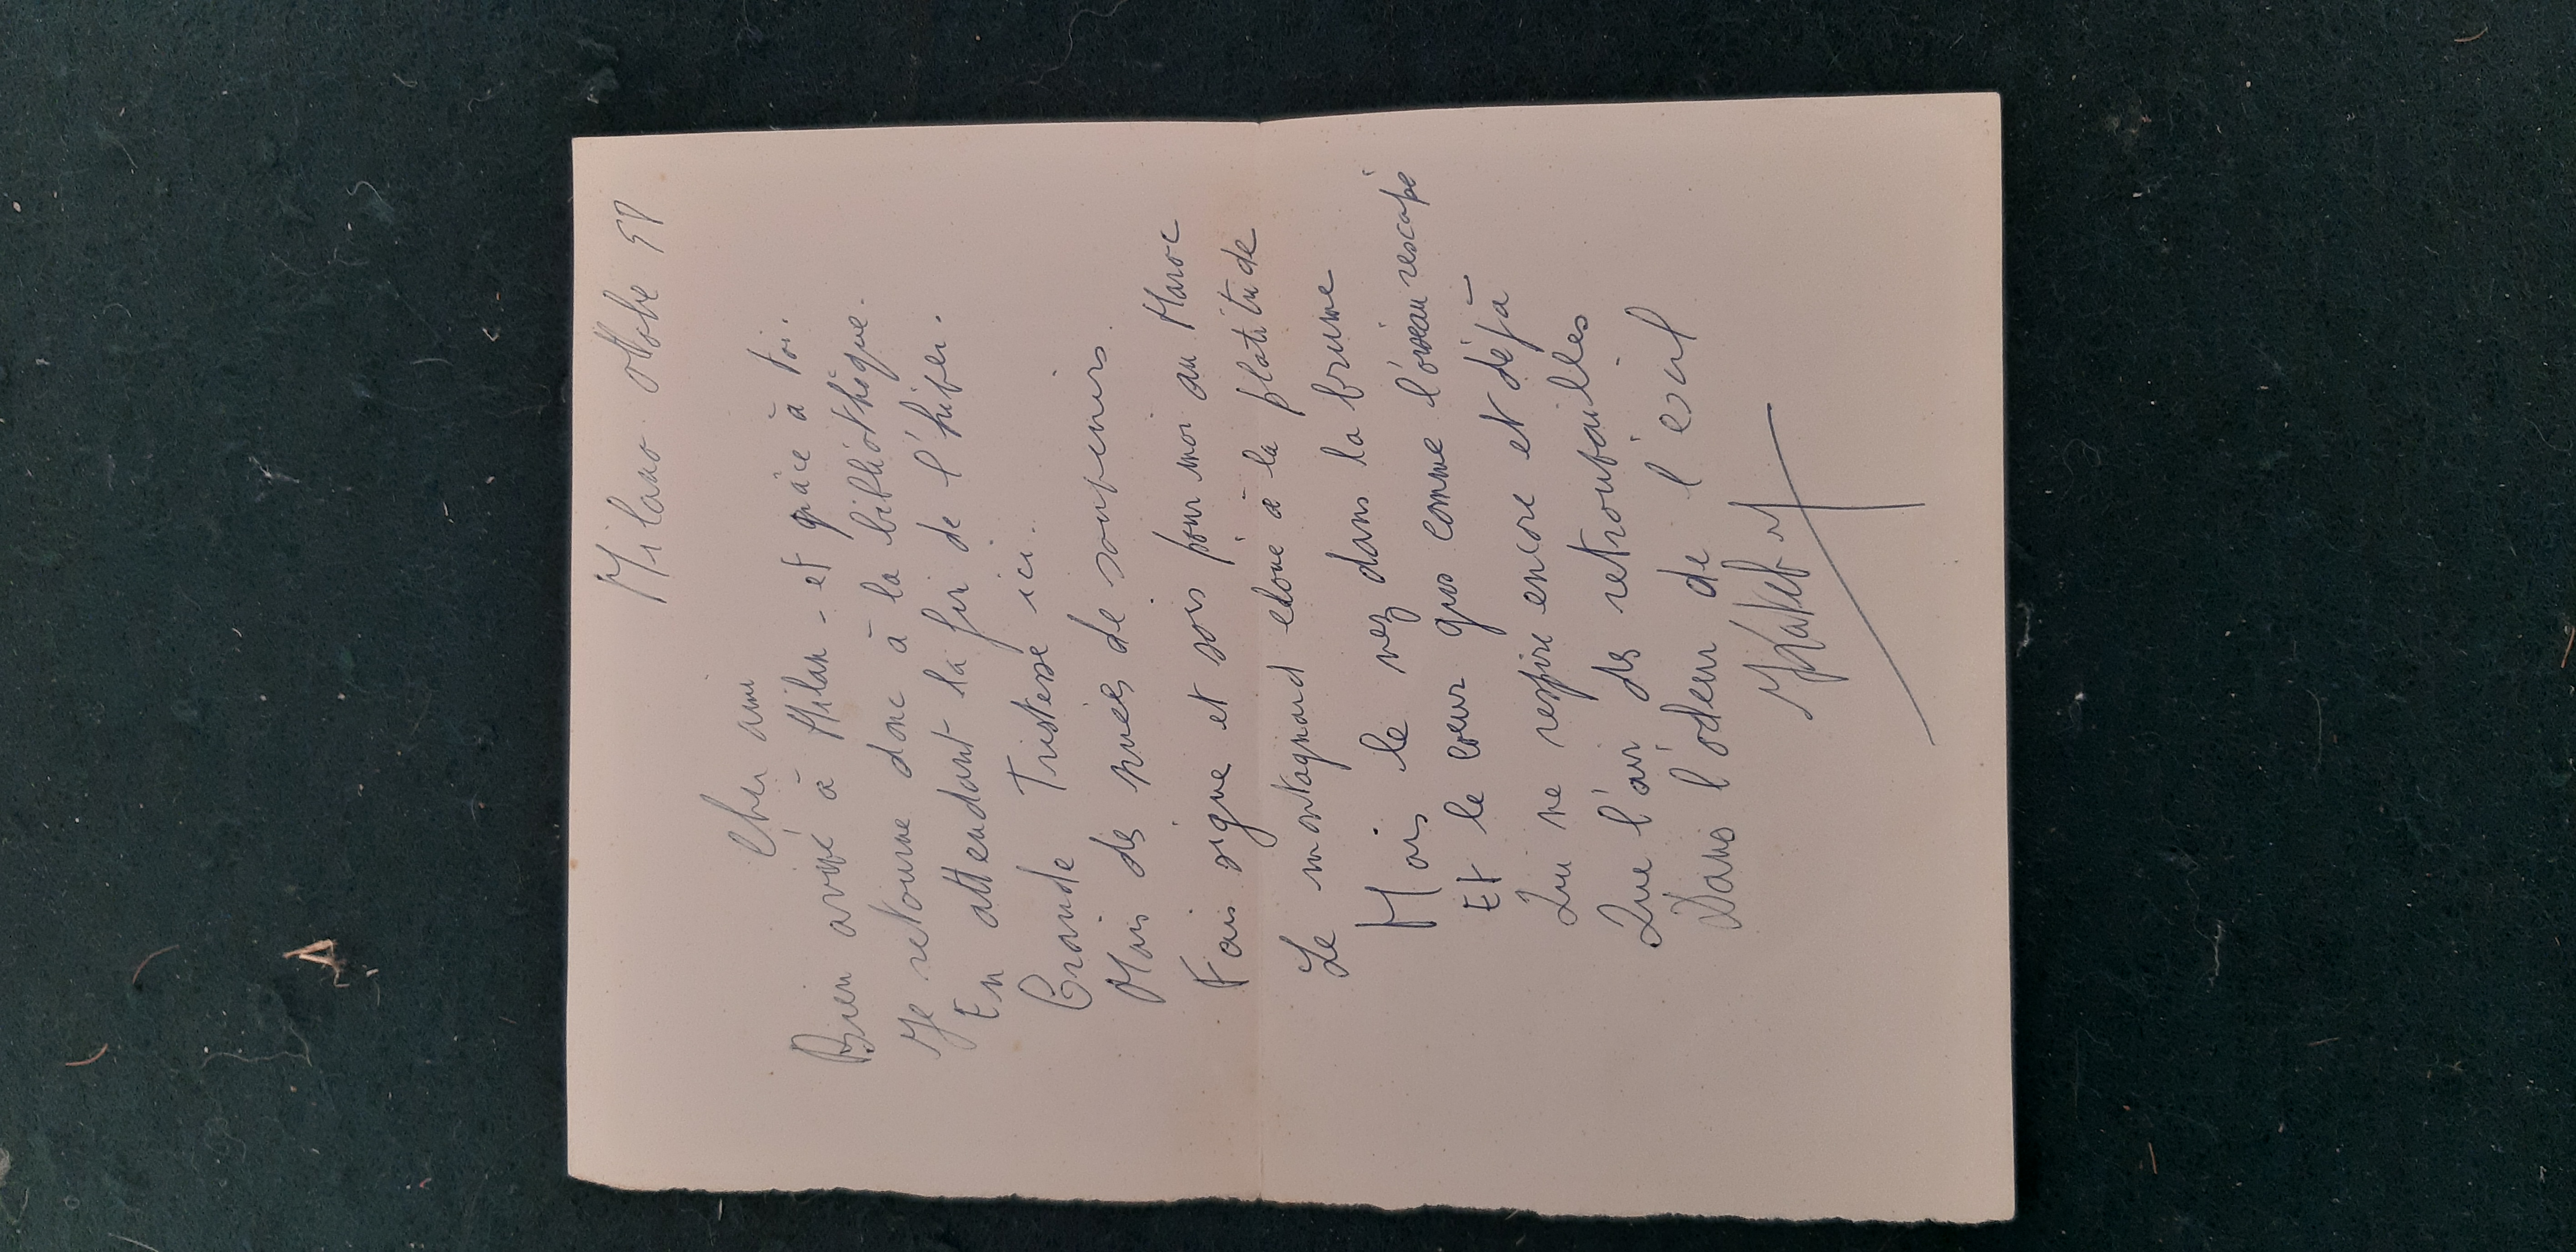 Milano Ottobre 58
Cher ami
Bien arrivé à Milan - et grâce à toi.
Je retourne donc à la bibliothèque.
En attendant la fin de l'hiver.
Grande Tristesse ici.
Mais des nuées de souvenirs.
Fais signe et sois pour moi au Maroc
Le montagnard cloué à la platitude
Mais le nez dans la brume
Et le cœur gros comme l'oiseau rescapé
Qui ne respire encore et déjà
Que l'air des retrouvailles
Dans l'odeur de l'exil
Kateb